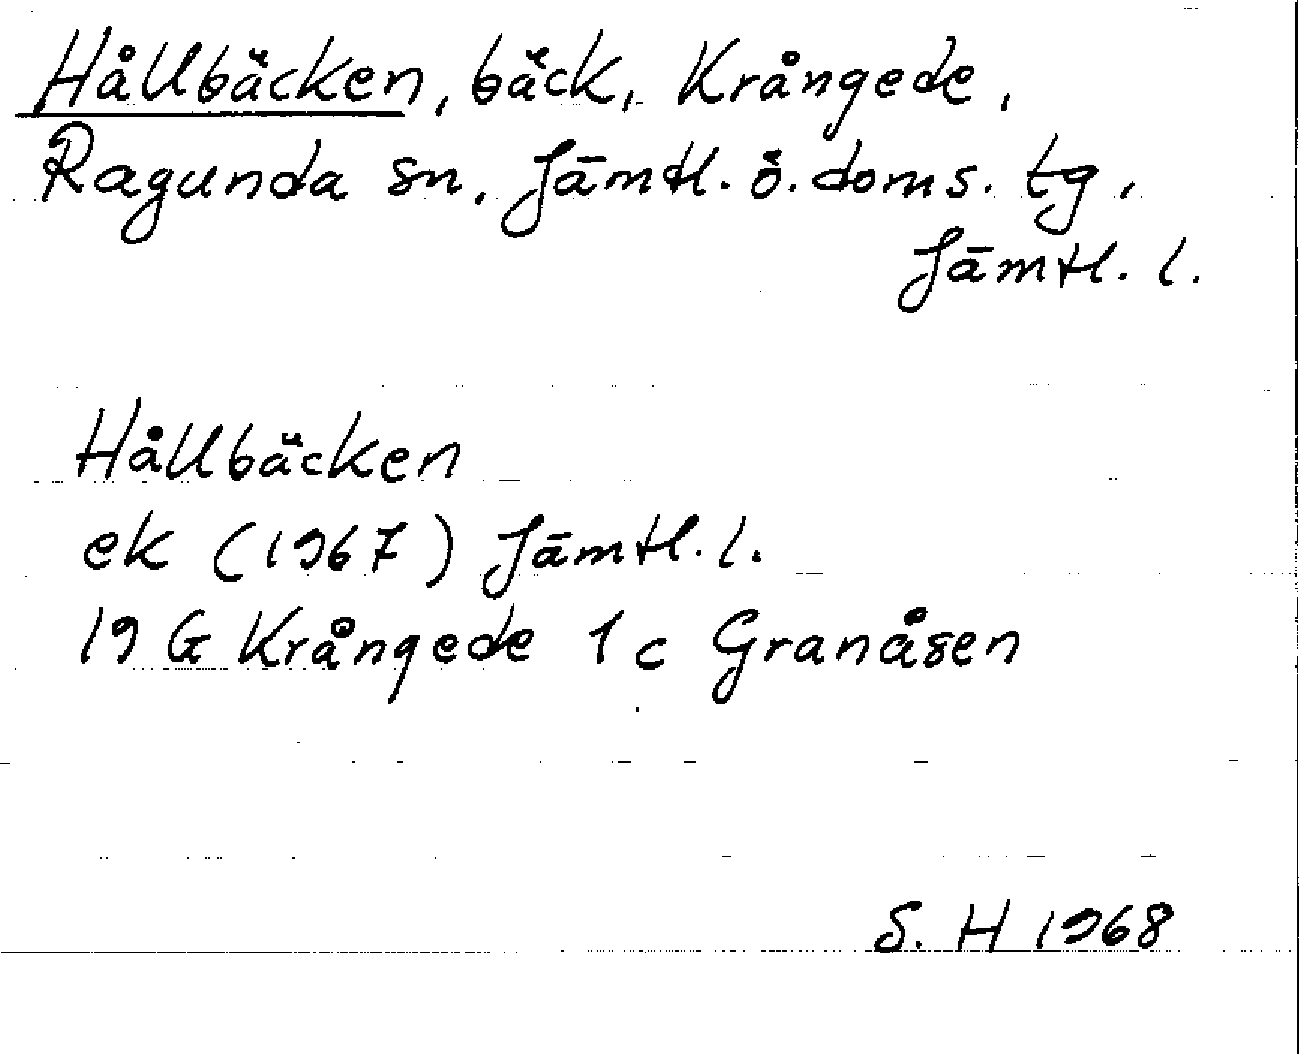 Hållbäcken, bäck, Krångede,
Ragunda sn. Jämtl. ö. doms. tg,
Jämtl. l.
Hållbäcken
ek (1967) Jämtl. l.
19 G Krångede 1 c Granåsen
S. H 1968